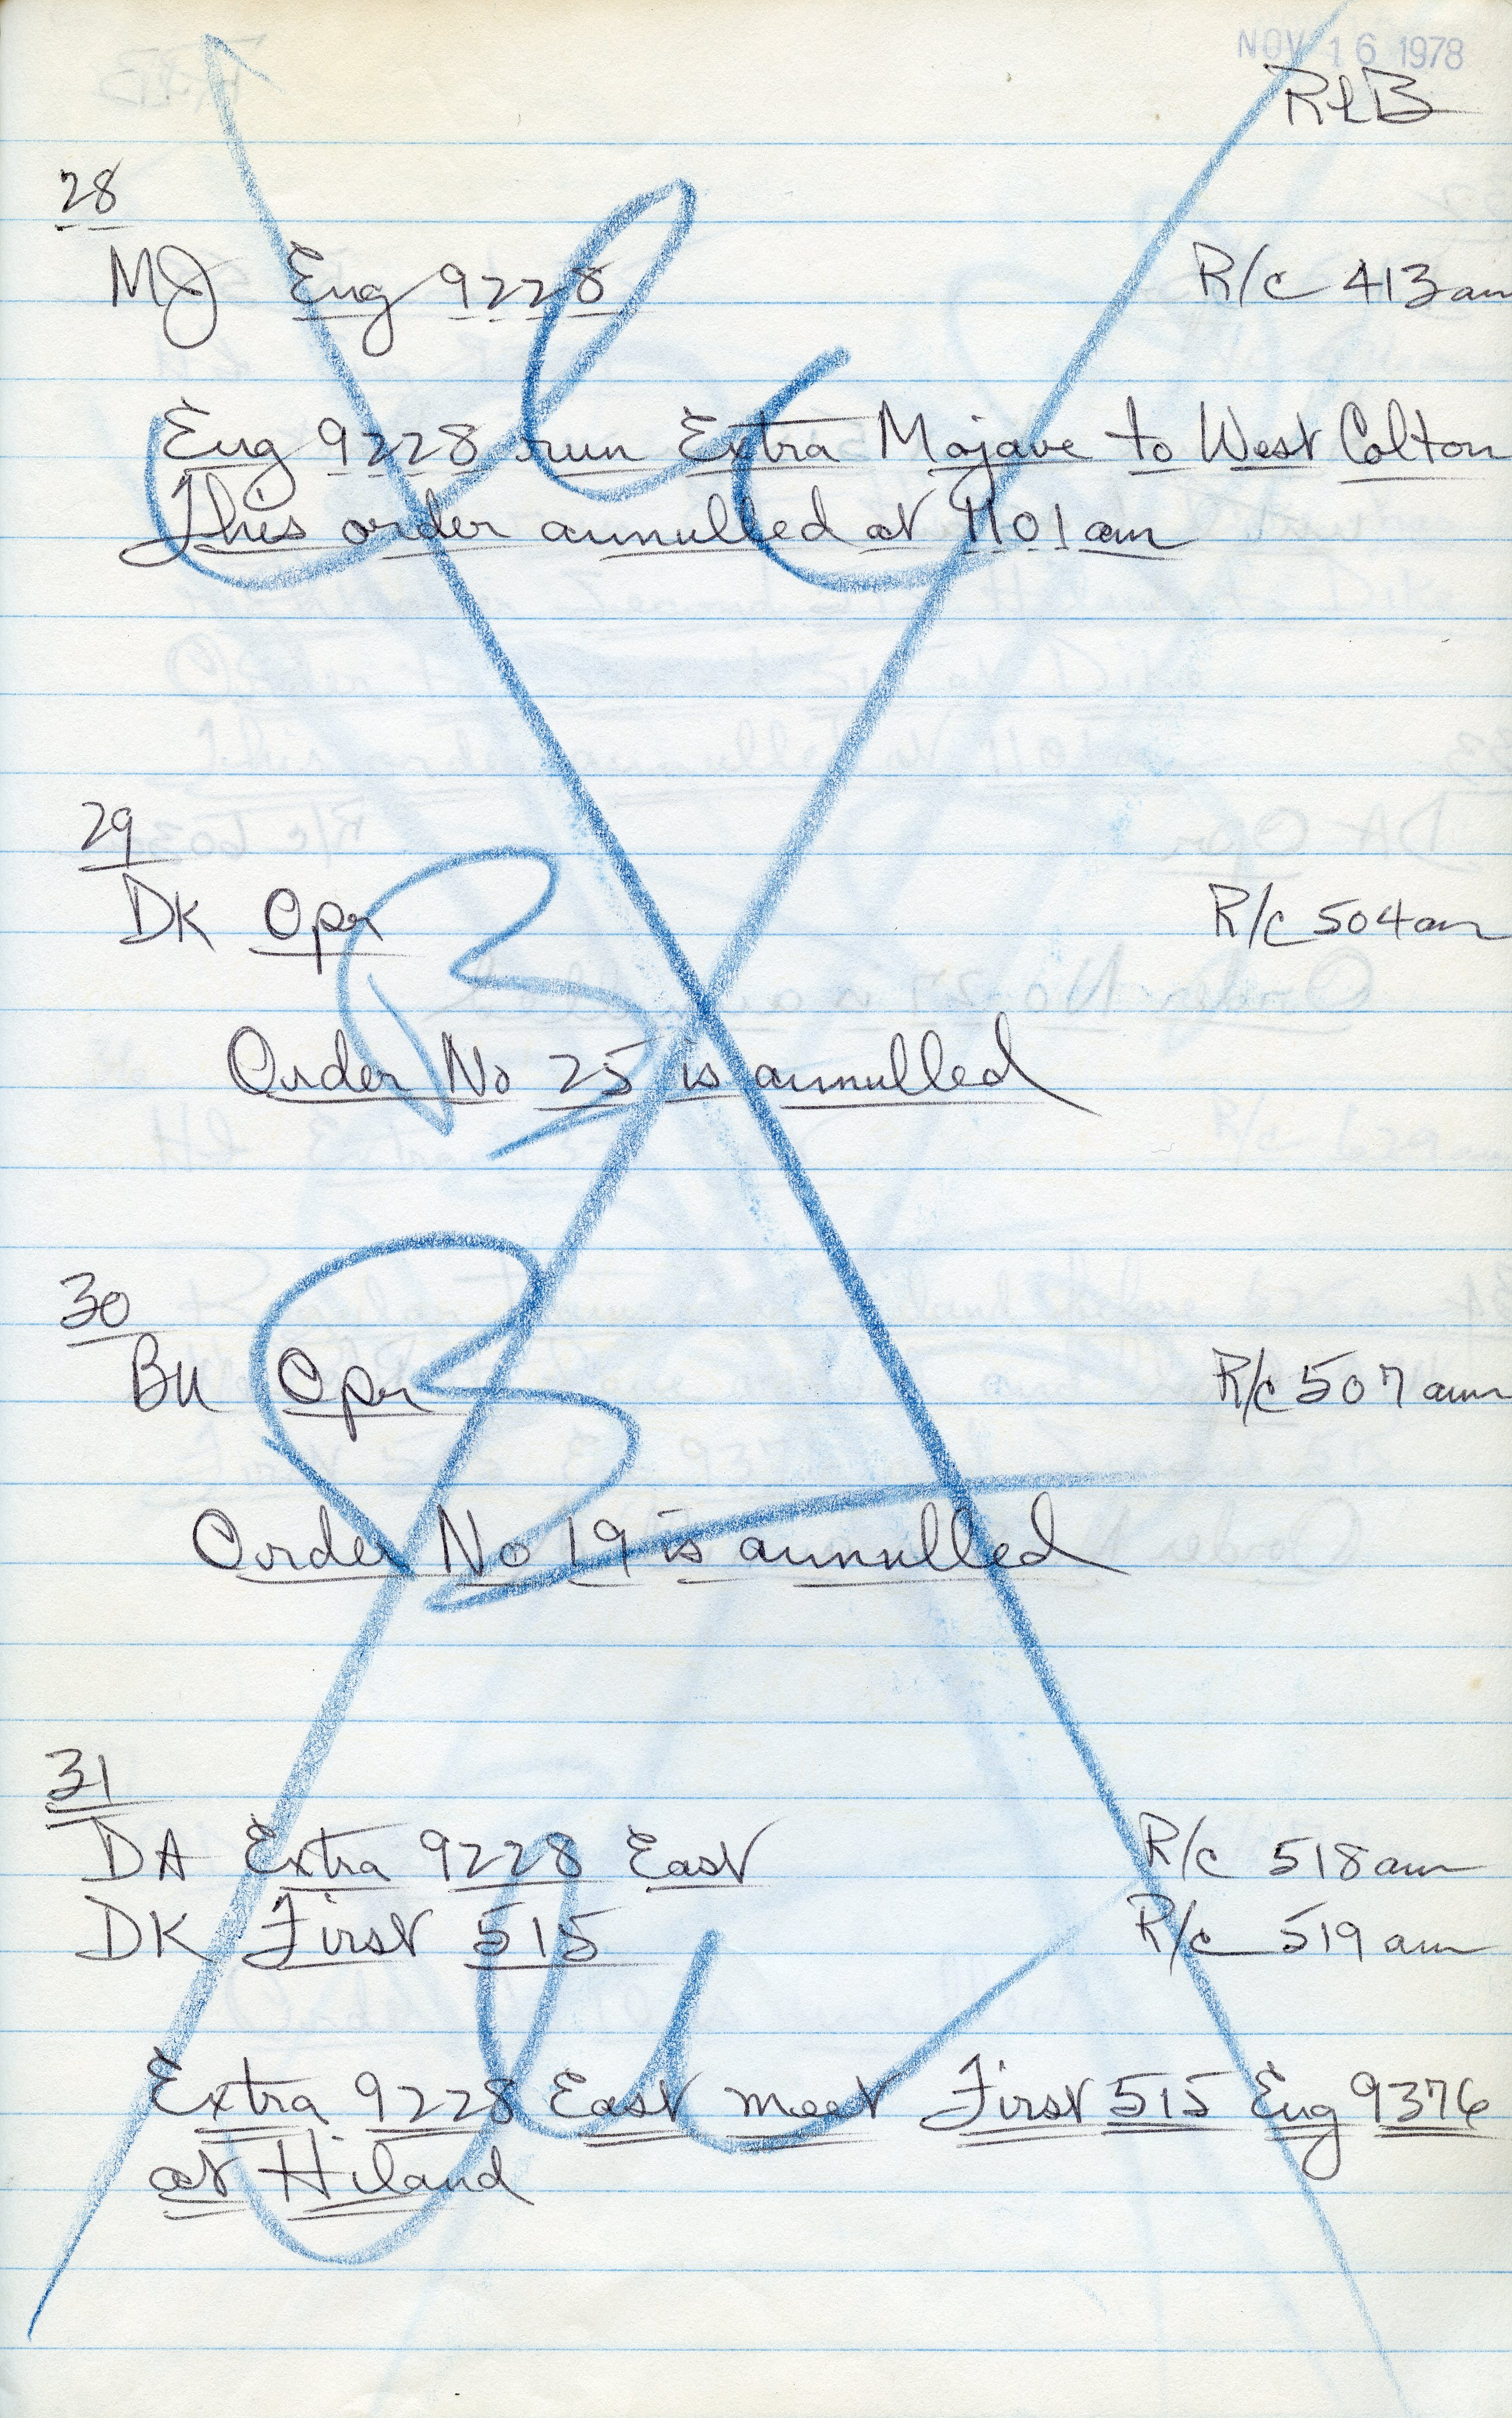 NOV 16 1978
RLB
28
MJ Eng 9228 R/c 413am
Eng 9228 run Extra Mojave to West Colton
This order annulled at 1101am
29
DK Opr R/c 504am
Order No 25 is annulled
30
BU Opr R/c 507am
Order No 19 is annulled
31
DA Extra 9228 East R/c 518am
DK First 515 R/c 519am
Extra 9228 East meet First 515 Eng 9376
at Hiland